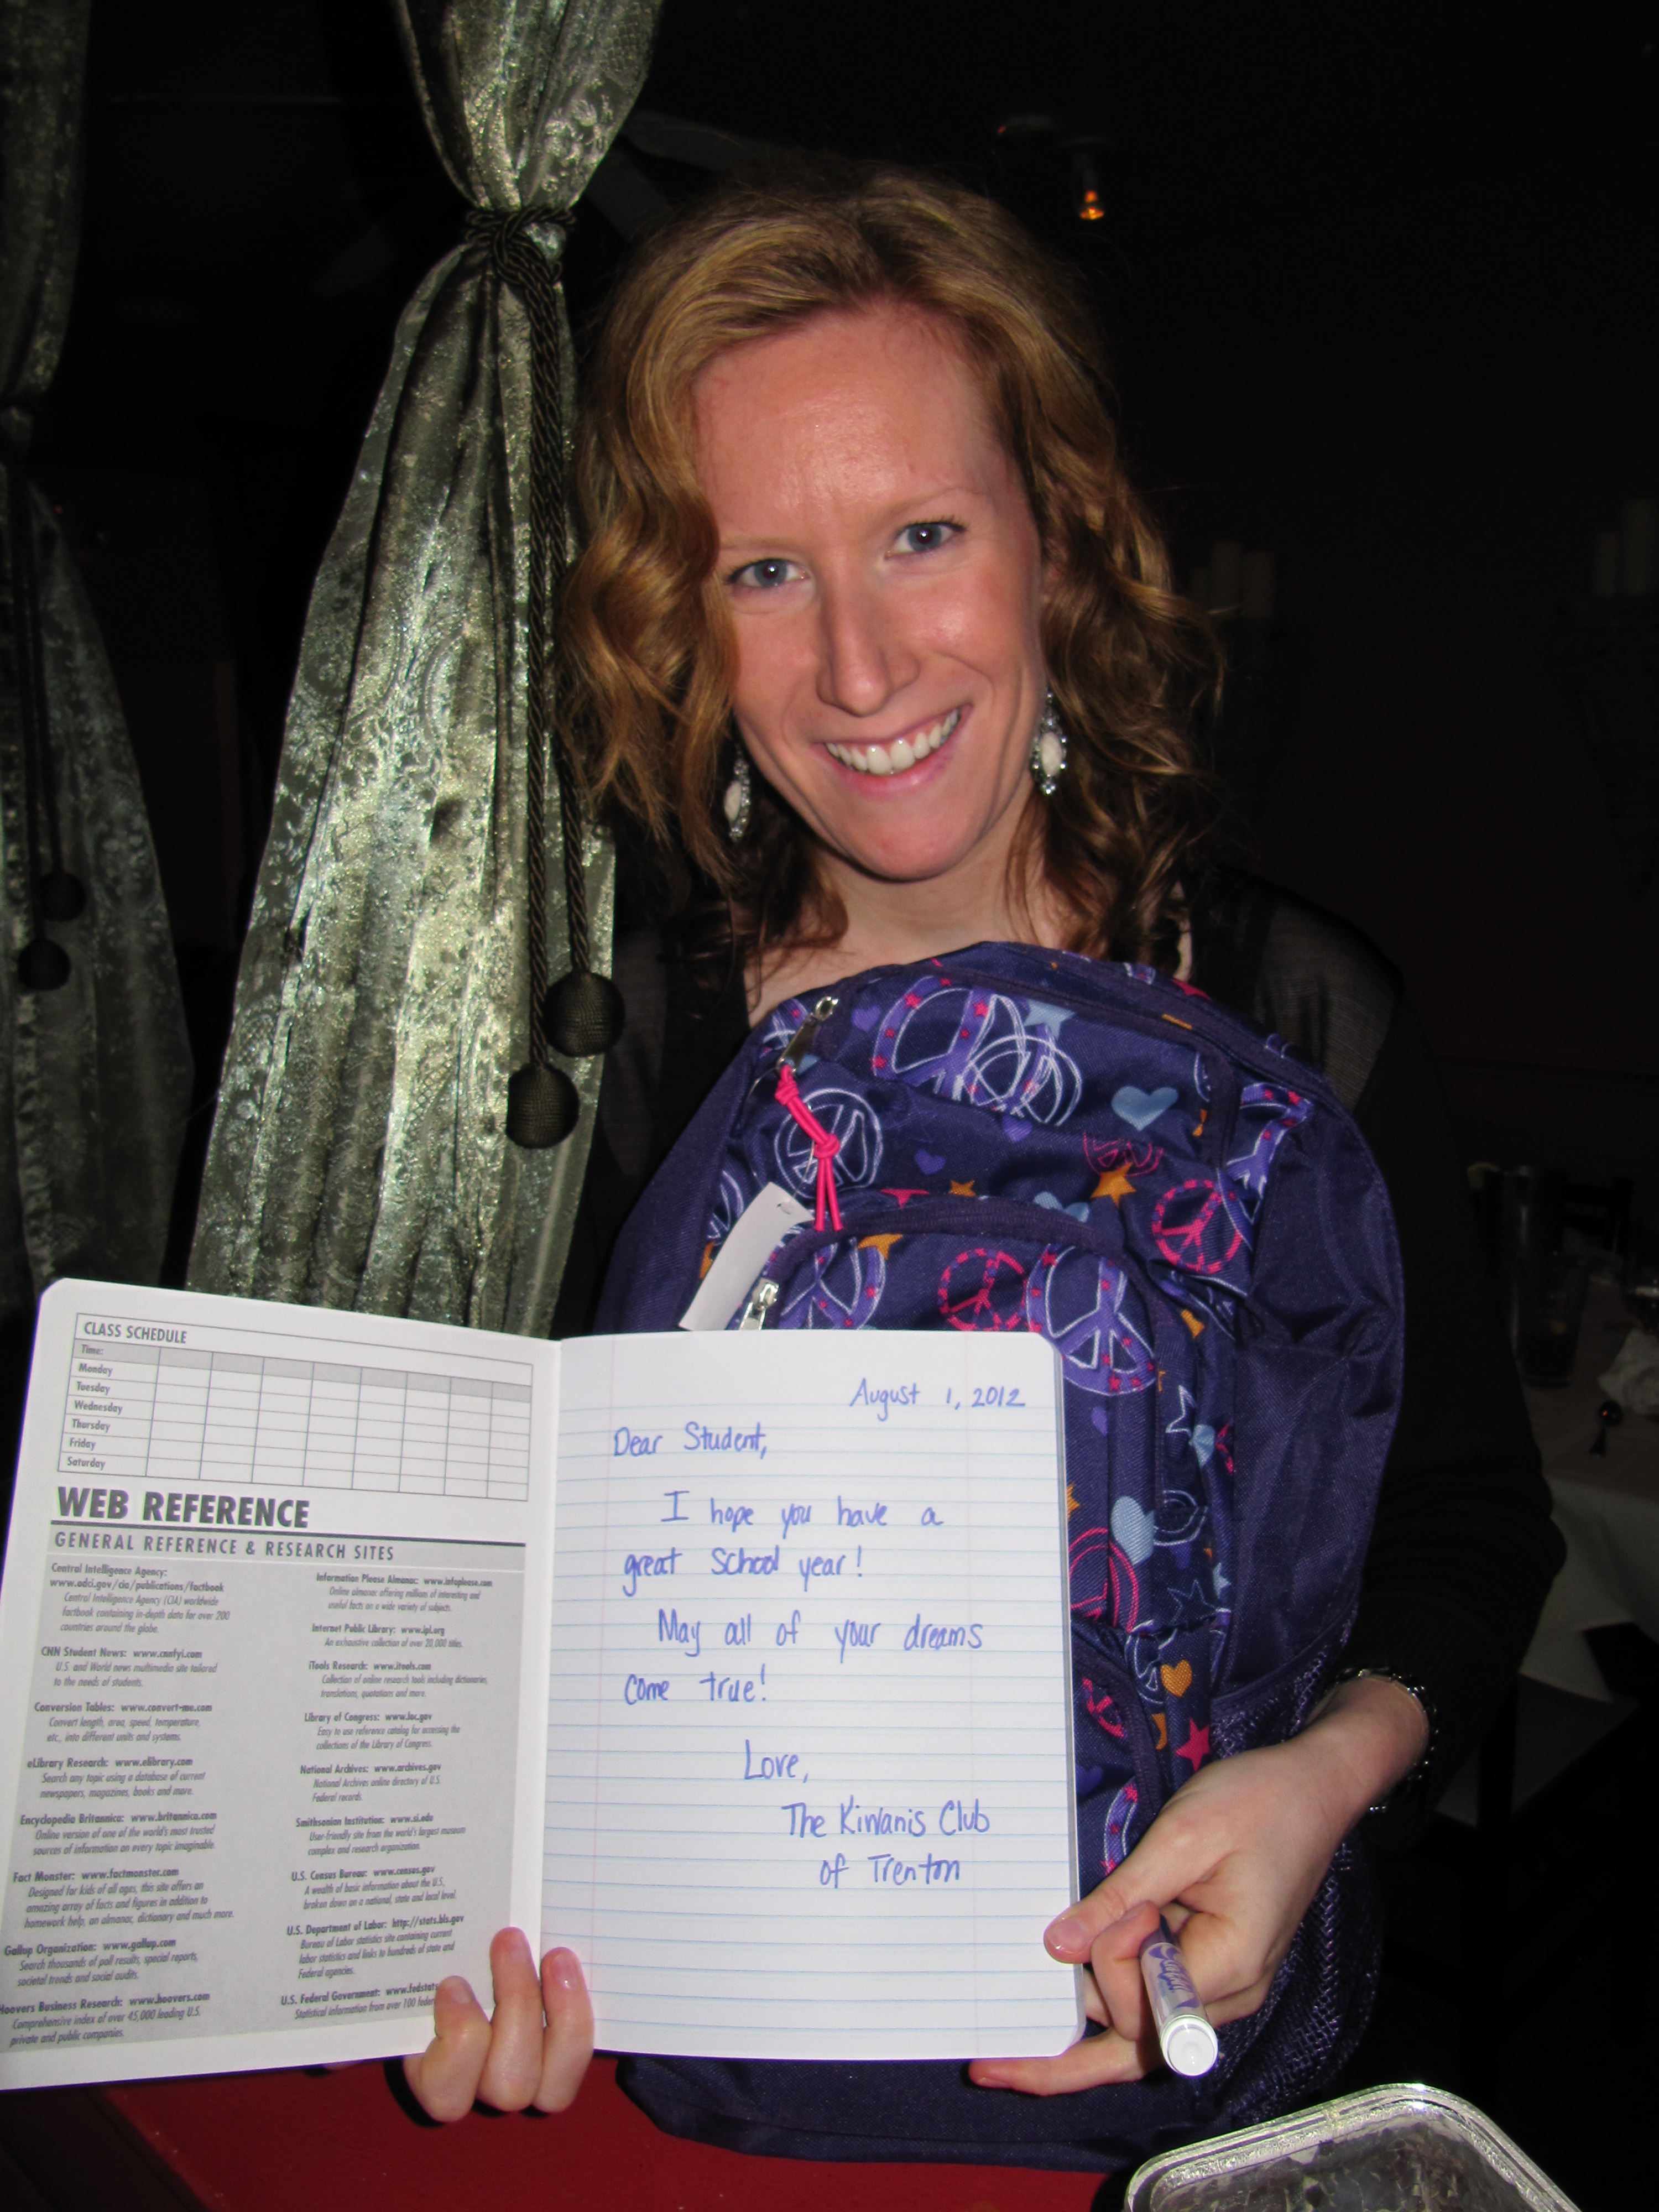 CLASS SCHEDULE
Time:
Monday
Tuesday
Wednesday
Thursday
Friday
Saturday
WEB REFERENCE
GENERAL REFERENCE & RESEARCH SITES
Central Intelligence Agency:
www.odci.gov/cia/publications/factbook
Central Intelligence Agency (CIA) worldwide
factbook containing in-depth data for over 200
countries around the globe.
CNN Student News: www.cnnfyi.com
U.S. and World news multimedia site tailored
to the needs of students.
Conversion Tables: www.convert-me.com
Convert length, area, speed, temperature,
etc., into different units and systems.
eLibrary Research: www.elibrary.com
Search any topic using a database of current
newspapers, magazines, books and more.
Encyclopedia Britannica: www.britannica.com
Online version of one of the world's most trusted
sources of information on every topic imaginable.
Fact Monster: www.factmonster.com
Designed for kids of all ages, this site offers an
amazing array of facts and figures in addition to
homework help, an almanac, dictionary and much more.
Gallup Organization: www.gallup.com
Search thousands of poll results, special reports,
societal trends and social audits.
Hoovers Business Research: www.hoovers.com
Comprehensive index of over 45,000 leading U.S.
private and public companies.
Information Please Almanac: www.infoplease.com
Online almanac offering millions of interesting and
useful facts on a wide variety of subjects.
Internet Public Library: www.ipl.org
An exhaustive collection of over 20,000 titles.
iTools Research: www.itools.com
Collection of online research tools including dictionaries,
translations, quotations and more.
Library of Congress: www.loc.gov
Easy to use reference catalog for accessing the
collections of the Library of Congress.
National Archives: www.archives.gov
National Archives online directory of U.S.
Federal records.
Smithsonian Institution: www.si.edu
User-friendly site from the world's largest museum
complex and research organization.
U.S. Census Bureau: www.census.gov
A wealth of basic information about the U.S.
broken down on a national, state and local level.
U.S. Department of Labor: http://stats.bls.gov
Bureau of Labor statistics site containing current
labor statistics and links to hundreds of state and
Federal agencies.
U.S. Federal Government: www.fedstat
Statistical information from over 100
August 1, 2012
Dear Student,
I hope you have a
great school year!
May all of your dreams
come true!
Love,
The Kiwanis Club
of Trenton